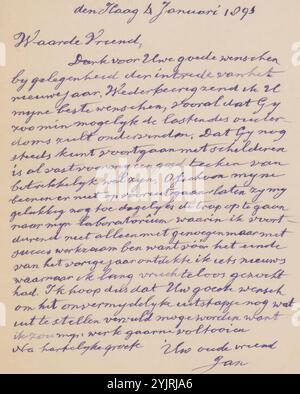 den Haag 4 Januari 1893
Waarde Vriend,
Dank voor Uwe goede wenschen
by gelegenheid der intrede van het
nieuwe jaar. Wederkeerig zend ik U
myne beste wenschen, vooral dat Gy
zoo min mogelyk de lasten des ouder-
doms zult ondervinden. Dat Gy nog
steeds kunt voortgaan met schilderen
is al vast voor my een goed teeken van
betrekkelyk welzyn. Ofschoon myne
beenen er niet op verbeteren laten zy my
gelukkig nog toe dagelyks de trap op te gaan
naar myn laboratorium waarin ik voort-
durend niet alleen met genoegen maar met
succes werkzaam ben want van het einde
van het vorige jaar ontdekte ik iets nieuws
waarnaar ik lang vruchteloos gezocht
had. Ik hoop dus dat Uw goede wensch
om het onvermydelyk uitstapje nog wat
uit te stellen vervuld moge worden want
ik zou myn werk gaarne voltooien
Na hartelyke groete Uw oude vriend
Jan
alamy